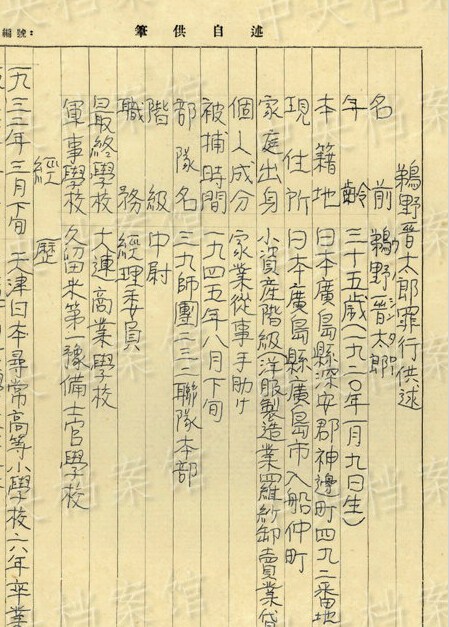 編號:
述自供筆
鵜野晋太郎罪行供述
名前 鵜野晋太郎
年齢 三十五歳(一九二〇年一月九日生)
本籍地 日本廣島縣深安郡神邊町四九二番地
現住所 日本廣島縣廣島市入船仲町
家庭出身 小資産階級(洋服製造業羅紗卸賣業貸
個人成分 家業從事手助け
被捕時間 一九四五年八月下旬
部隊名 三九師團二三二聯隊本部
階級 中尉
職務 經理委員
最終學校 大連高業學校
軍事學校 久留米第一豫備士官學校
經歷
一九三三年三月下旬 天津日本尋常高等小學校六年卒業
中央档案馆